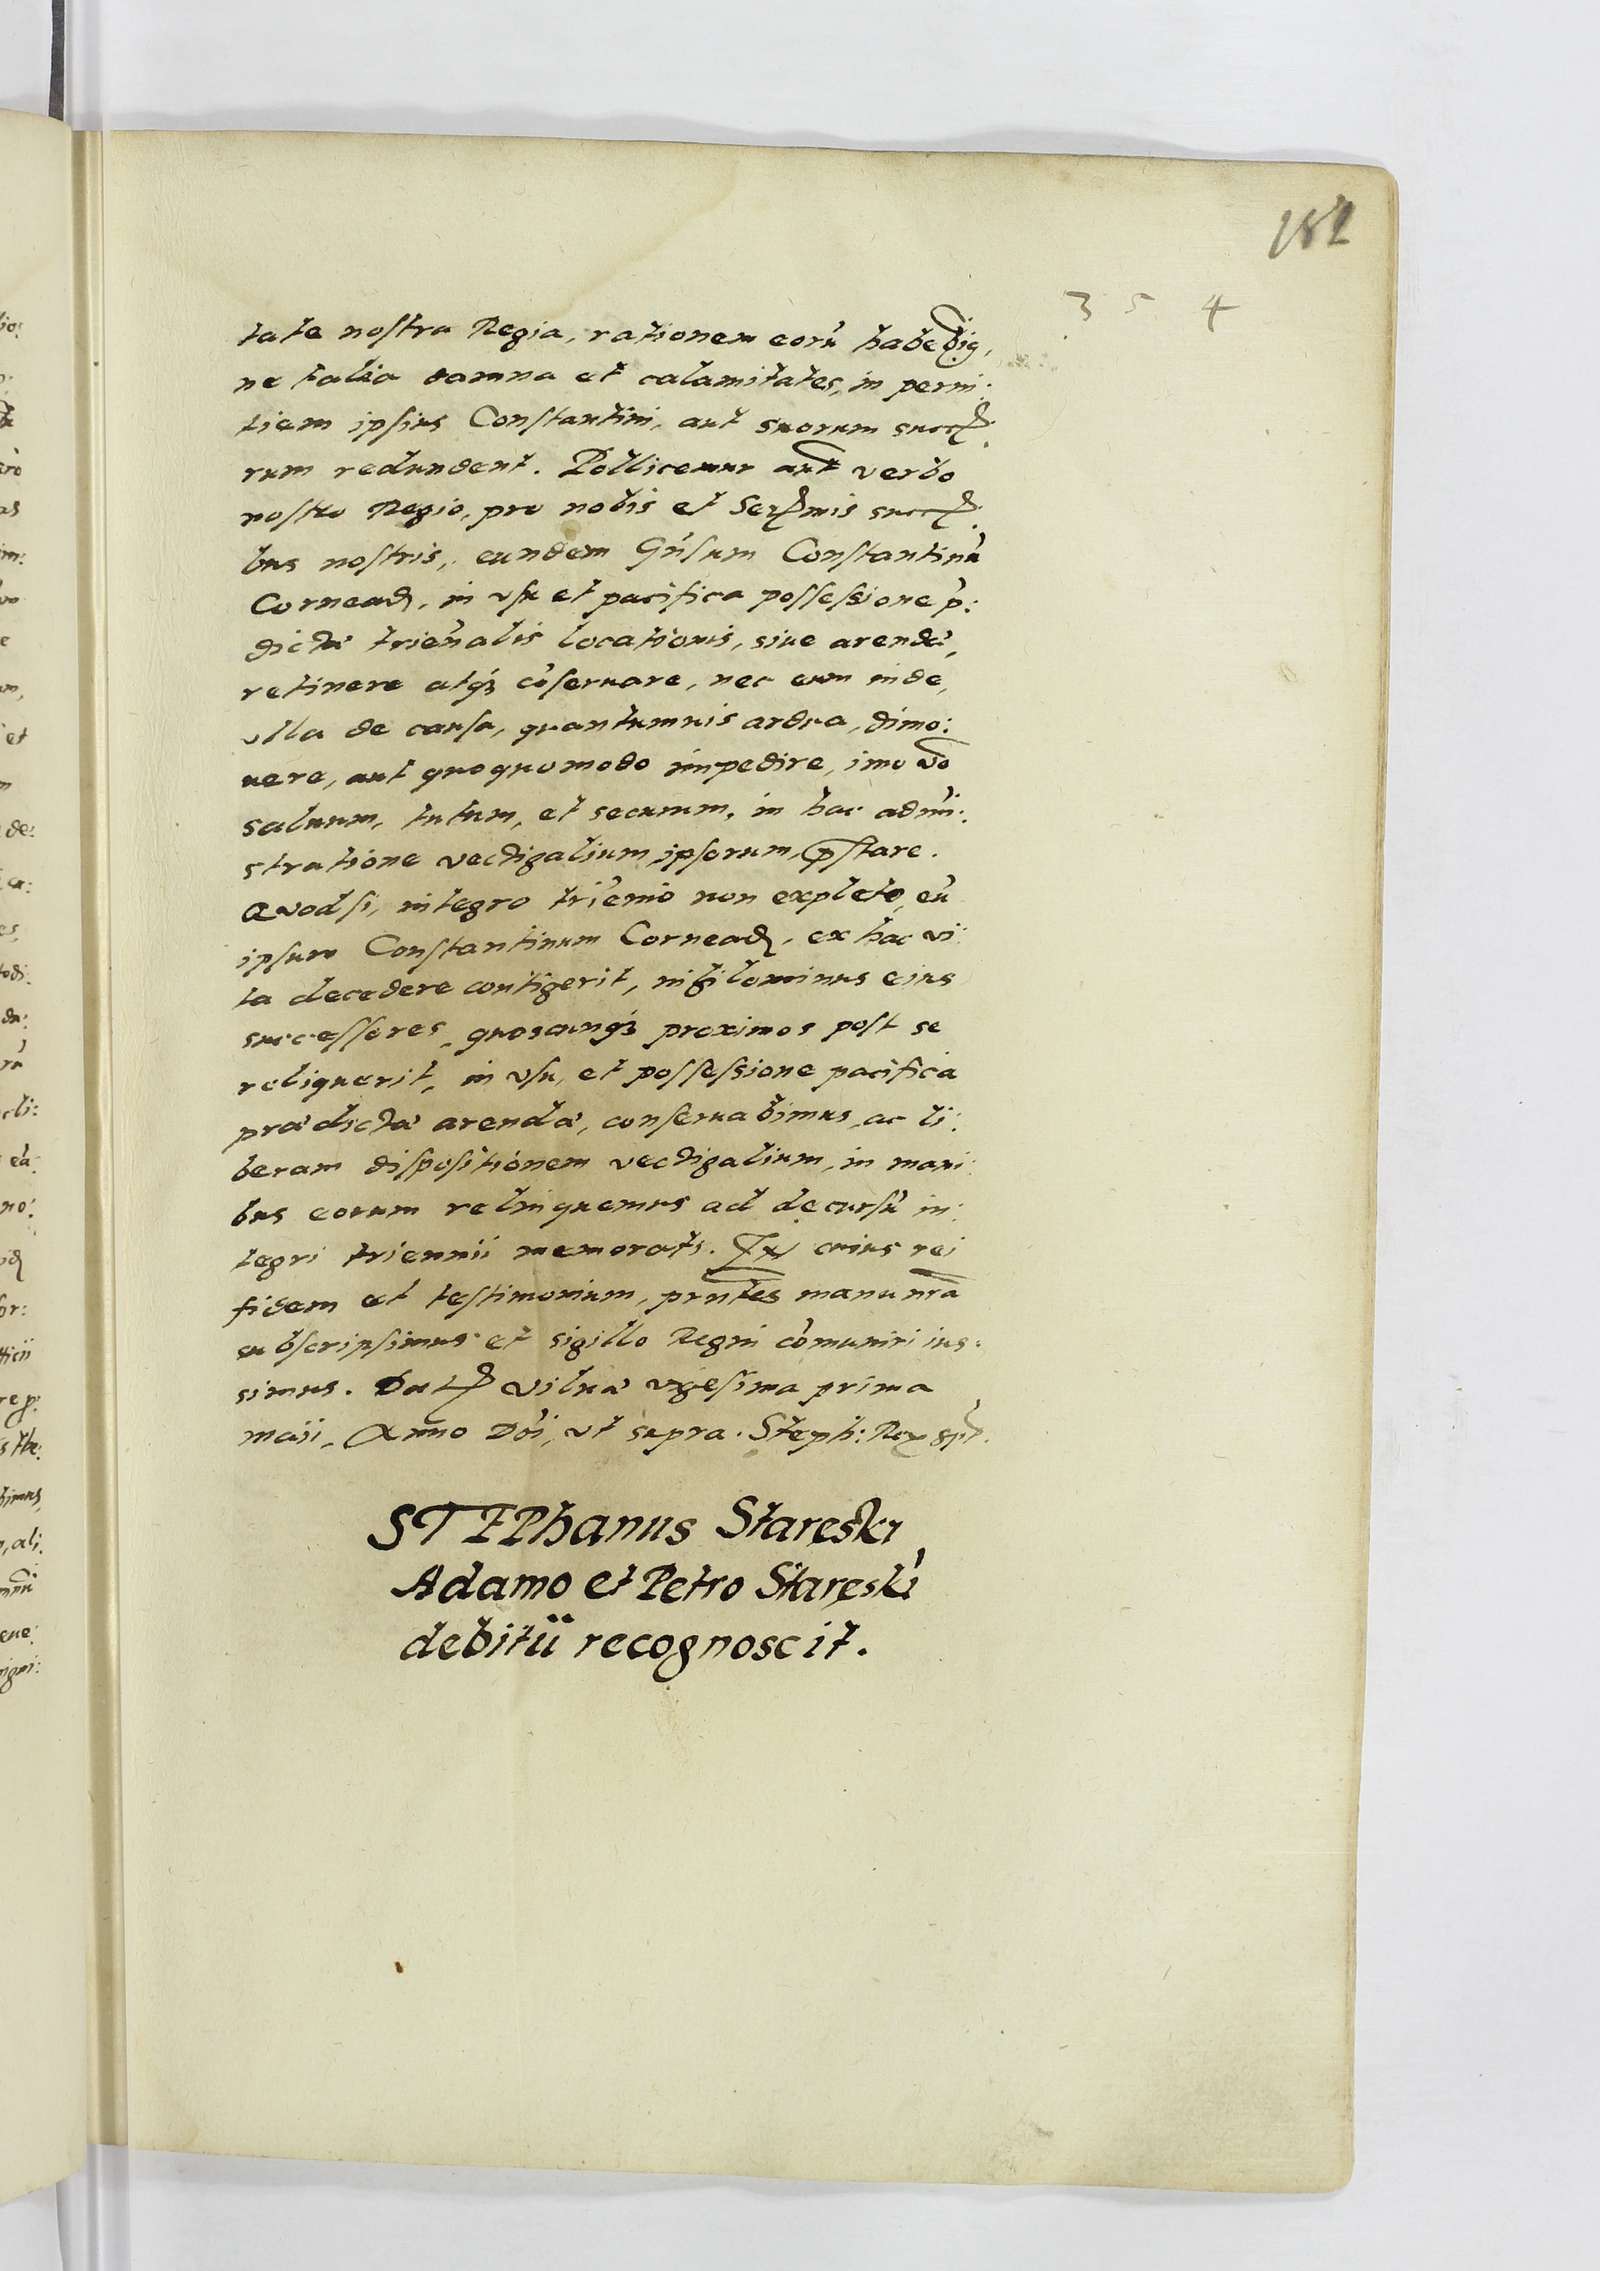 182
3 5 4
tate nostra Regia, rationem eorũ habebig,
ne talia damna et calamitates, in perni:
tiem ipsius Constantini, aut suorum success:
rum redundent. Pollicemur aut verbo
nostro Regio, pro nobis et Sermis success:
bus nostris, eundem Gñsum Constantinũ
Cornead, in vsu et pacifica possessione p̃:
dictæ trieñalis locationis, siue arendæ,
retinere atq3 cõseruare, nec eum inde,
vlla de causa, quantumuis ardua, dimo:
uere, aut quoquomodo impedire, imo vo
saluum, tutum, et securum, in hac admi:
stratione vectigalium ipsorum, pstare.
Quodsi, integro triẽnio non expleto, eũ
ipsum Constantinum Cornead, ex hac vi:
ta decedere contigerit, nihilominus eius
successores, quoscunq3 proximos post se
reliquerit, in vsu, et possessione pacifica
prædictæ arendæ, conseruabimus, ac li:
beram dispositionem vectigalium, in mani:
bus eorum relinquemus ad decursũ in:
tegri triennii memorati. In cuius rei
fidem et testimonium, prntes manu nra
subscripsimus et sigillo Regni cõmuniri ius:
simus. Dat Vilnæ vigesima prima
maii, Anno Dñi, vt supra. Steph: Rex sspt.
STEPhanus Staręski
Adamo et Petro Staręski
debitũ recognoscit.